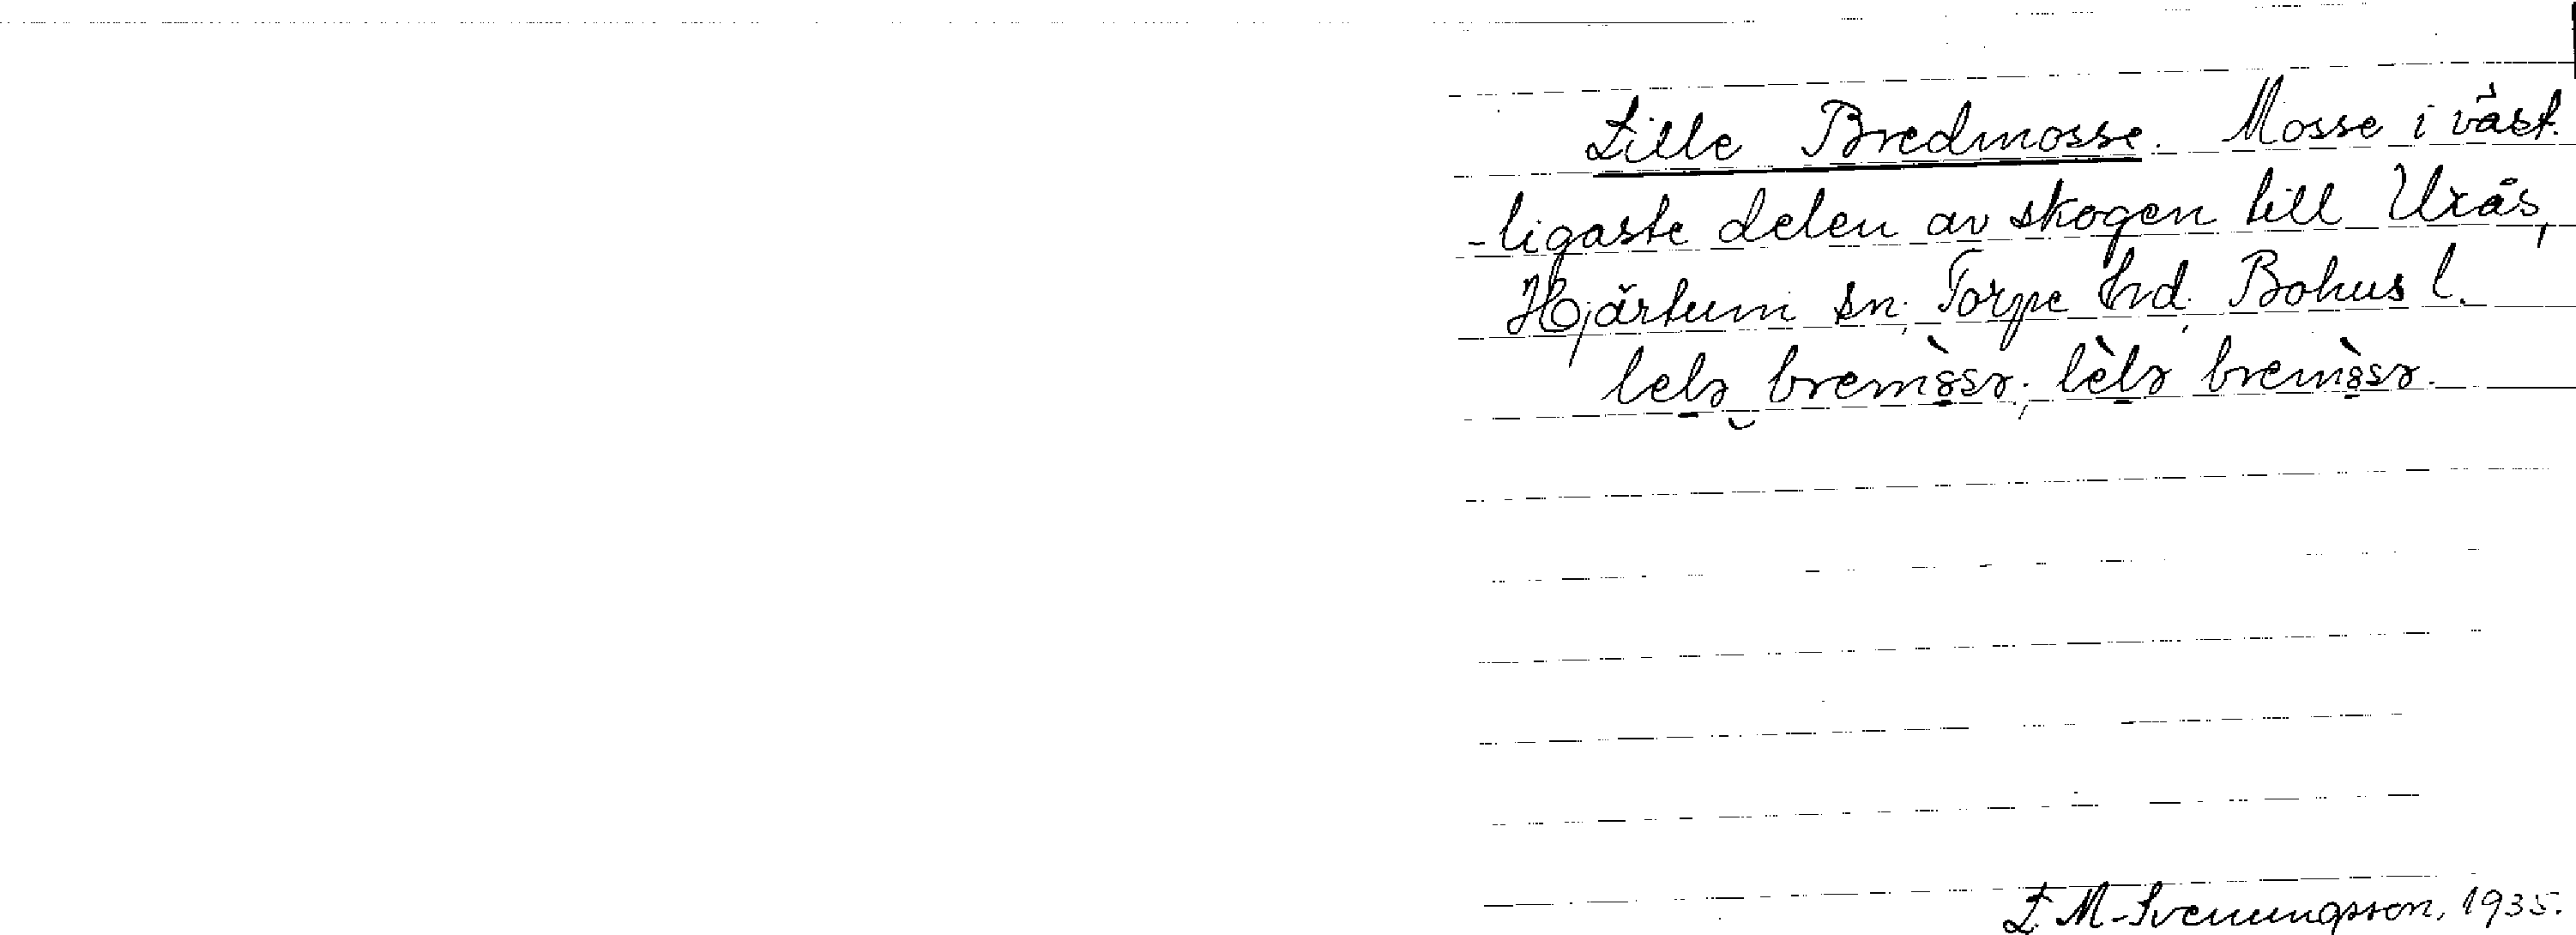 Lille Bredmosse. Mosse i väst-
-ligaste delen av skogen till Uxås,
Hjärtum sn, Torpe hd, Bohus l.
lelə bremòsə; lèlə bremòsə.
E. M-Svenungsson, 1935.